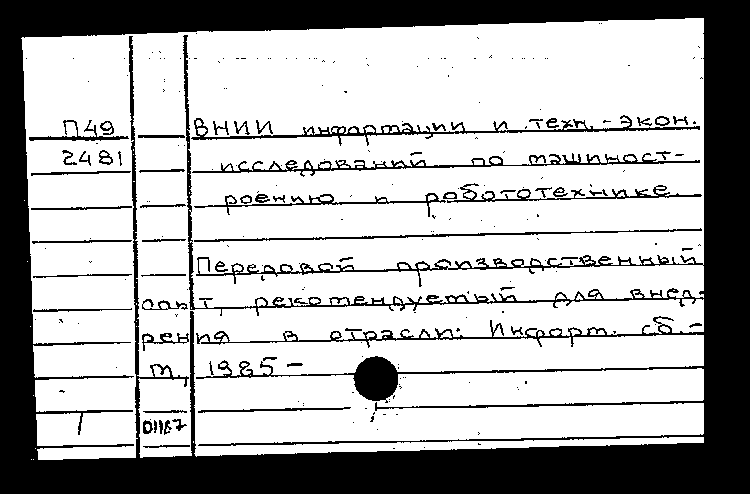 П49 ВНИИ информации и техн.-экон.
2481 исследований по машиност-
роению и робототехнике.
Передовой производственный
опыт, рекомендуемый для внед-
рения в отрасли: Информ. сб.-
М., 1985-
/ 01187